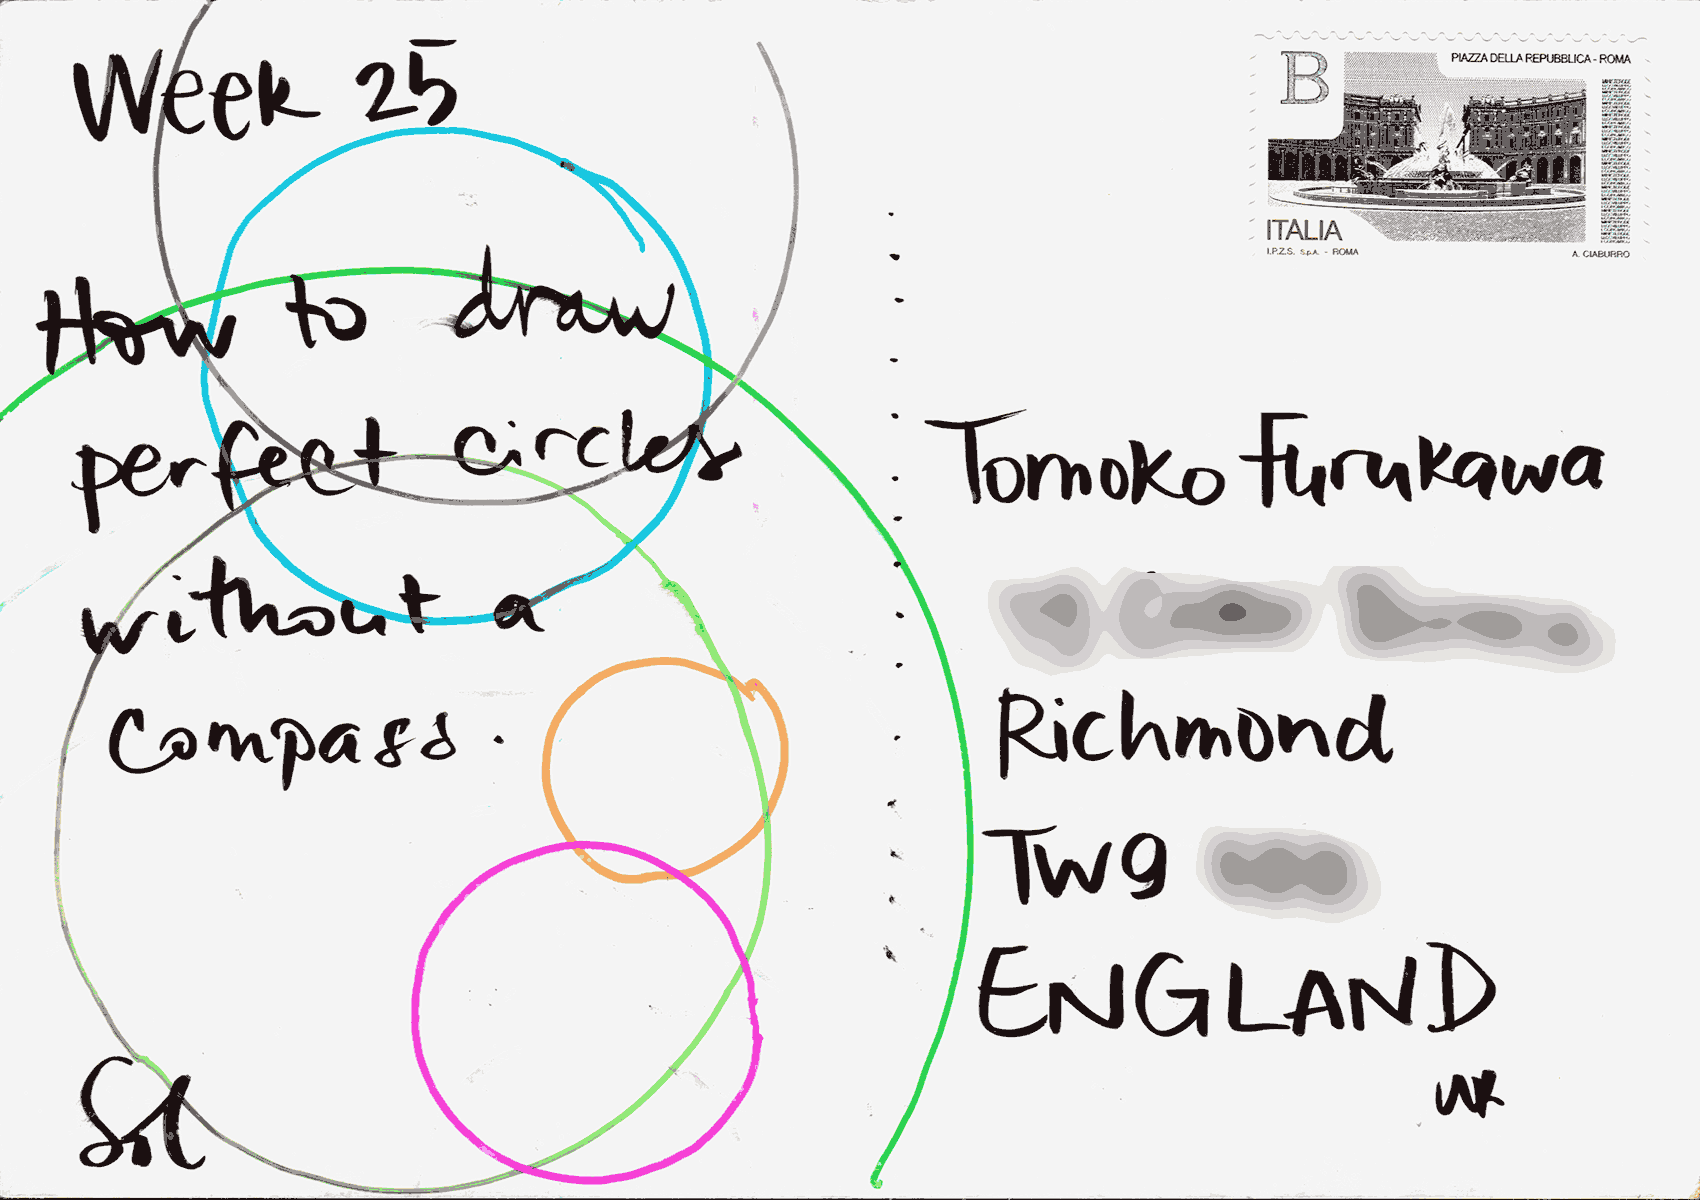 Week 25
How to draw
perfect circles
without a
compass.
Sol
B
PIAZZA DELLA REPUBBLICA - ROMA
ITALIA
I.P.Z.S. S.p.A. - ROMA
A. CIABURRO
Tomoko Furukawa
Richmond
TW9
ENGLAND
UK